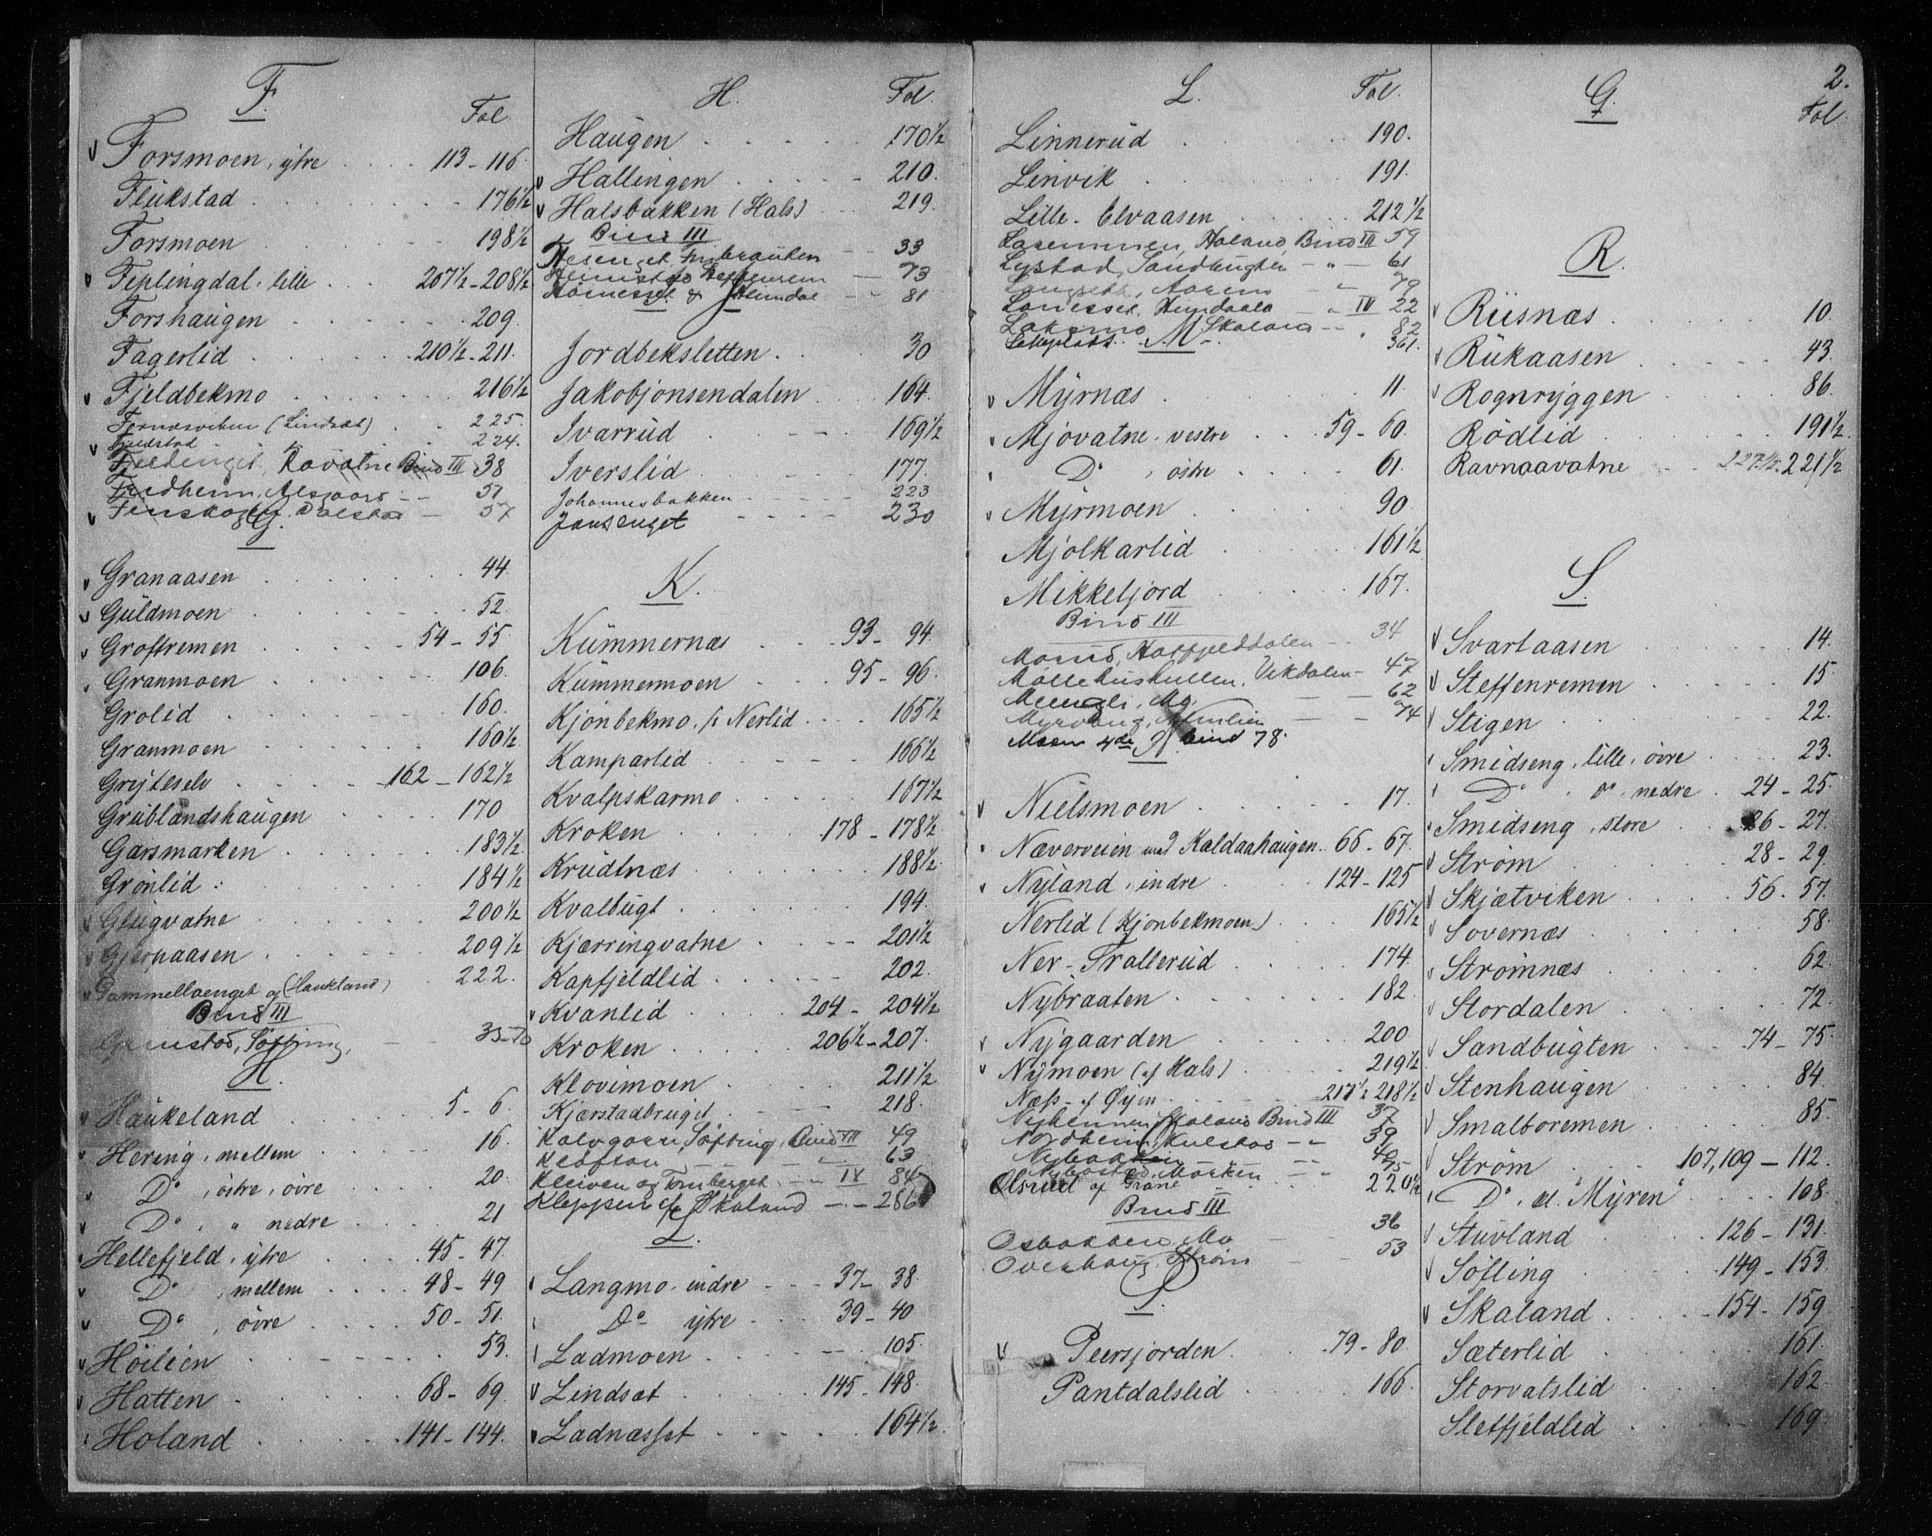 F.
Fol.
Forsmoen, ytre 113 - 116.
Flukstad 176½
Forsmoen 198½
Fiplingdal, lille 207½ - 208½
Forshaugen 209.
Fagerlid 210½ - 211.
Fjeldbekmo 216½
(Lindsæt) 225.
224.
Bind III 38
Fredheim, 51
57
G.
Granaasen 44.
Guldmoen 52.
Groftremen 54 - 55
Granmoen 106.
Grolid 160.
Granmoen 160½
Gryteselv 162 - 162½
Grublandshaugen 170
Garsmarken 183½
Grönlid 184½
Glugvatne 200½
209½
Gammelloenget og (Haukland) 222.
Bind III
Söfting,
H.
Haukeland 5 - 6.
Hering, mellem 16.
Do, östre, övre 20.
Do, " nedre 21
Hellefjeld, ytre 45 - 47.
Do, mellem 48 - 49
Do, övre 50 - 51.
Höilien 53.
Hatten 68 - 69
Holand 141 - 144.
H.
Fol.
Haugen 170½
Hallingen 210.
Halsbakken (Hals) 219.
Bind III
33
73
81
J
Jordbekslelten 30
Jakobjonsendalen 164.
Ivarrud 169½
Iverslid 177.
Johannesbakken 223
Jansenget 230
K.
Kummernæs 93 - 94.
Kummermoen 95 - 96.
Kjönbekmo, /: Nerlid 165½
Kamparlid 166½
Kvalpskarmo 167½
Kroken 178 - 178½
Krudtnæs 188½
Kvalbugt 194.
Kjærringvatne 201½
Kapfjeldlid 202.
Kvanlid 204 - 204½
Kroken 206½ - 207.
Klovimoen 211½
Kjærstadbruget 218.
Söfting, Bind III 49
63
Kleiven og Tomberget IV 84
Kleppen af Skaland 286
L.
Langmo, indre 37 - 38.
Do ytre 39 - 40
Ladmoen 105.
Lindset 145 - 148.
Ladnæsset 164½
L.
Fol.
Linnerud 190.
Linvik 191.
Lille-Elvaasen 212½
Holand Bind III 59
Lystad, Sandbugten - " - 61
79
IV 22
Laksmo Skaland 82
361.
M.
Myrnæs 11.
Mjövatne, vestre 59 - 60.
Do, östre 61.
Myrmoen 90.
Mjölkarlid 161½
Mikkeljord 167.
Bind III
Moeno, Hatfjelddalen 34
Vikdalen 47
62
Myrvang, Almlien 74
Moen 4de bind 78.
N.
Nielsmoen 17.
Næverveien med Kaldaahaugen. 66 - 67.
Nyland, indre 124 - 125
Nerlid (Kjönbekmoen) 165½
Ner-Trallerud 174.
Nybraaten 182.
Nygaarden 200
Nymoen (af Hals) 219½
Næs af Öyen 217½ - 218½
Skaland Bind III 37
Nordheim, Kulstad 39
Nybakken
Nybostad, Marken
Olsrud af Grane 220½
Bind III
Osbakken, Mo 36
Overhaug, Ström 53
P.
Peersjorden 79 - 80.
Pantdalslid 166.
2.
Q.
Fol.
R.
Riisnæs 10.
Rukaasen 43.
Rognryggen 86.
Rödlid 191½.
Ravnaavatne 227½. 221½
S.
Svartaasen 14.
Steffenremen 15.
Stigen 22.
Smidseng, lille, övre 23.
Do do, nedre 24 - 25.
Smidseng, store 26 - 27.
Ström 28 - 29
Skjætviken 56 - 57.
Sovernæs 58.
Strömnæs 62.
Stordalen 72.
Sandbugten 74 - 75
Stenhaugen 84.
Smalboremen 85.
Ström 107, 109 - 112.
Do, el. "Myren" 108.
Stuvland 126 - 131.
Söfting 149 - 153.
Skaland 154 - 159.
Sæterlid 161.
Storvatslid 162.
Sletfjeldlid 169.